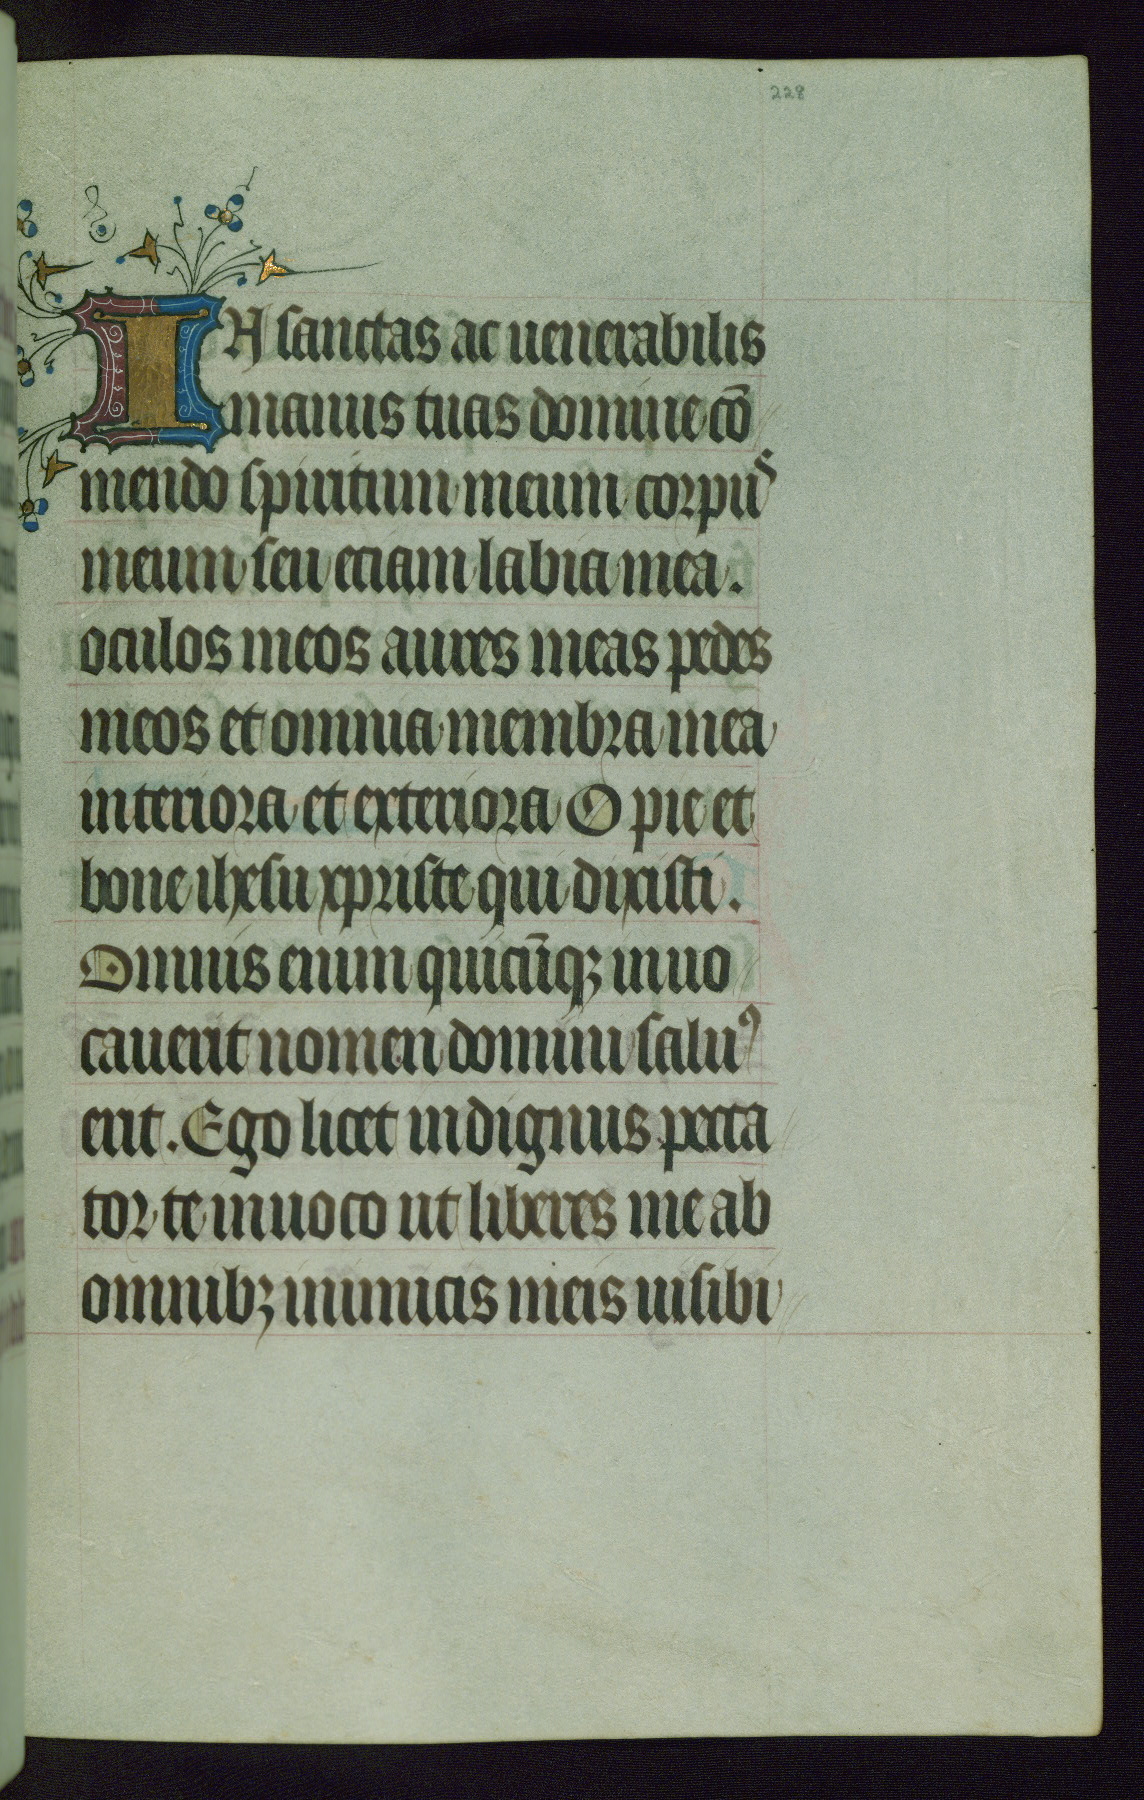 228
IN sanctas ac uenerabilis
manus tuas domine cō
mendo spiritum meum corpus
meum seu etiam labia mea.
oculos meos aures meas pedes
meos et omnia membra mea
interiora et exteriora O pie et
bone ihesu xpriste qui dixisti.
Omnis enim quicūqꝫ inuo
cauerit nomen domini saluꝰ
erit. Ego licet indignus pecca
tor te inuoco ut liberes me ab
omnibꝫ inimicis meis uisibi